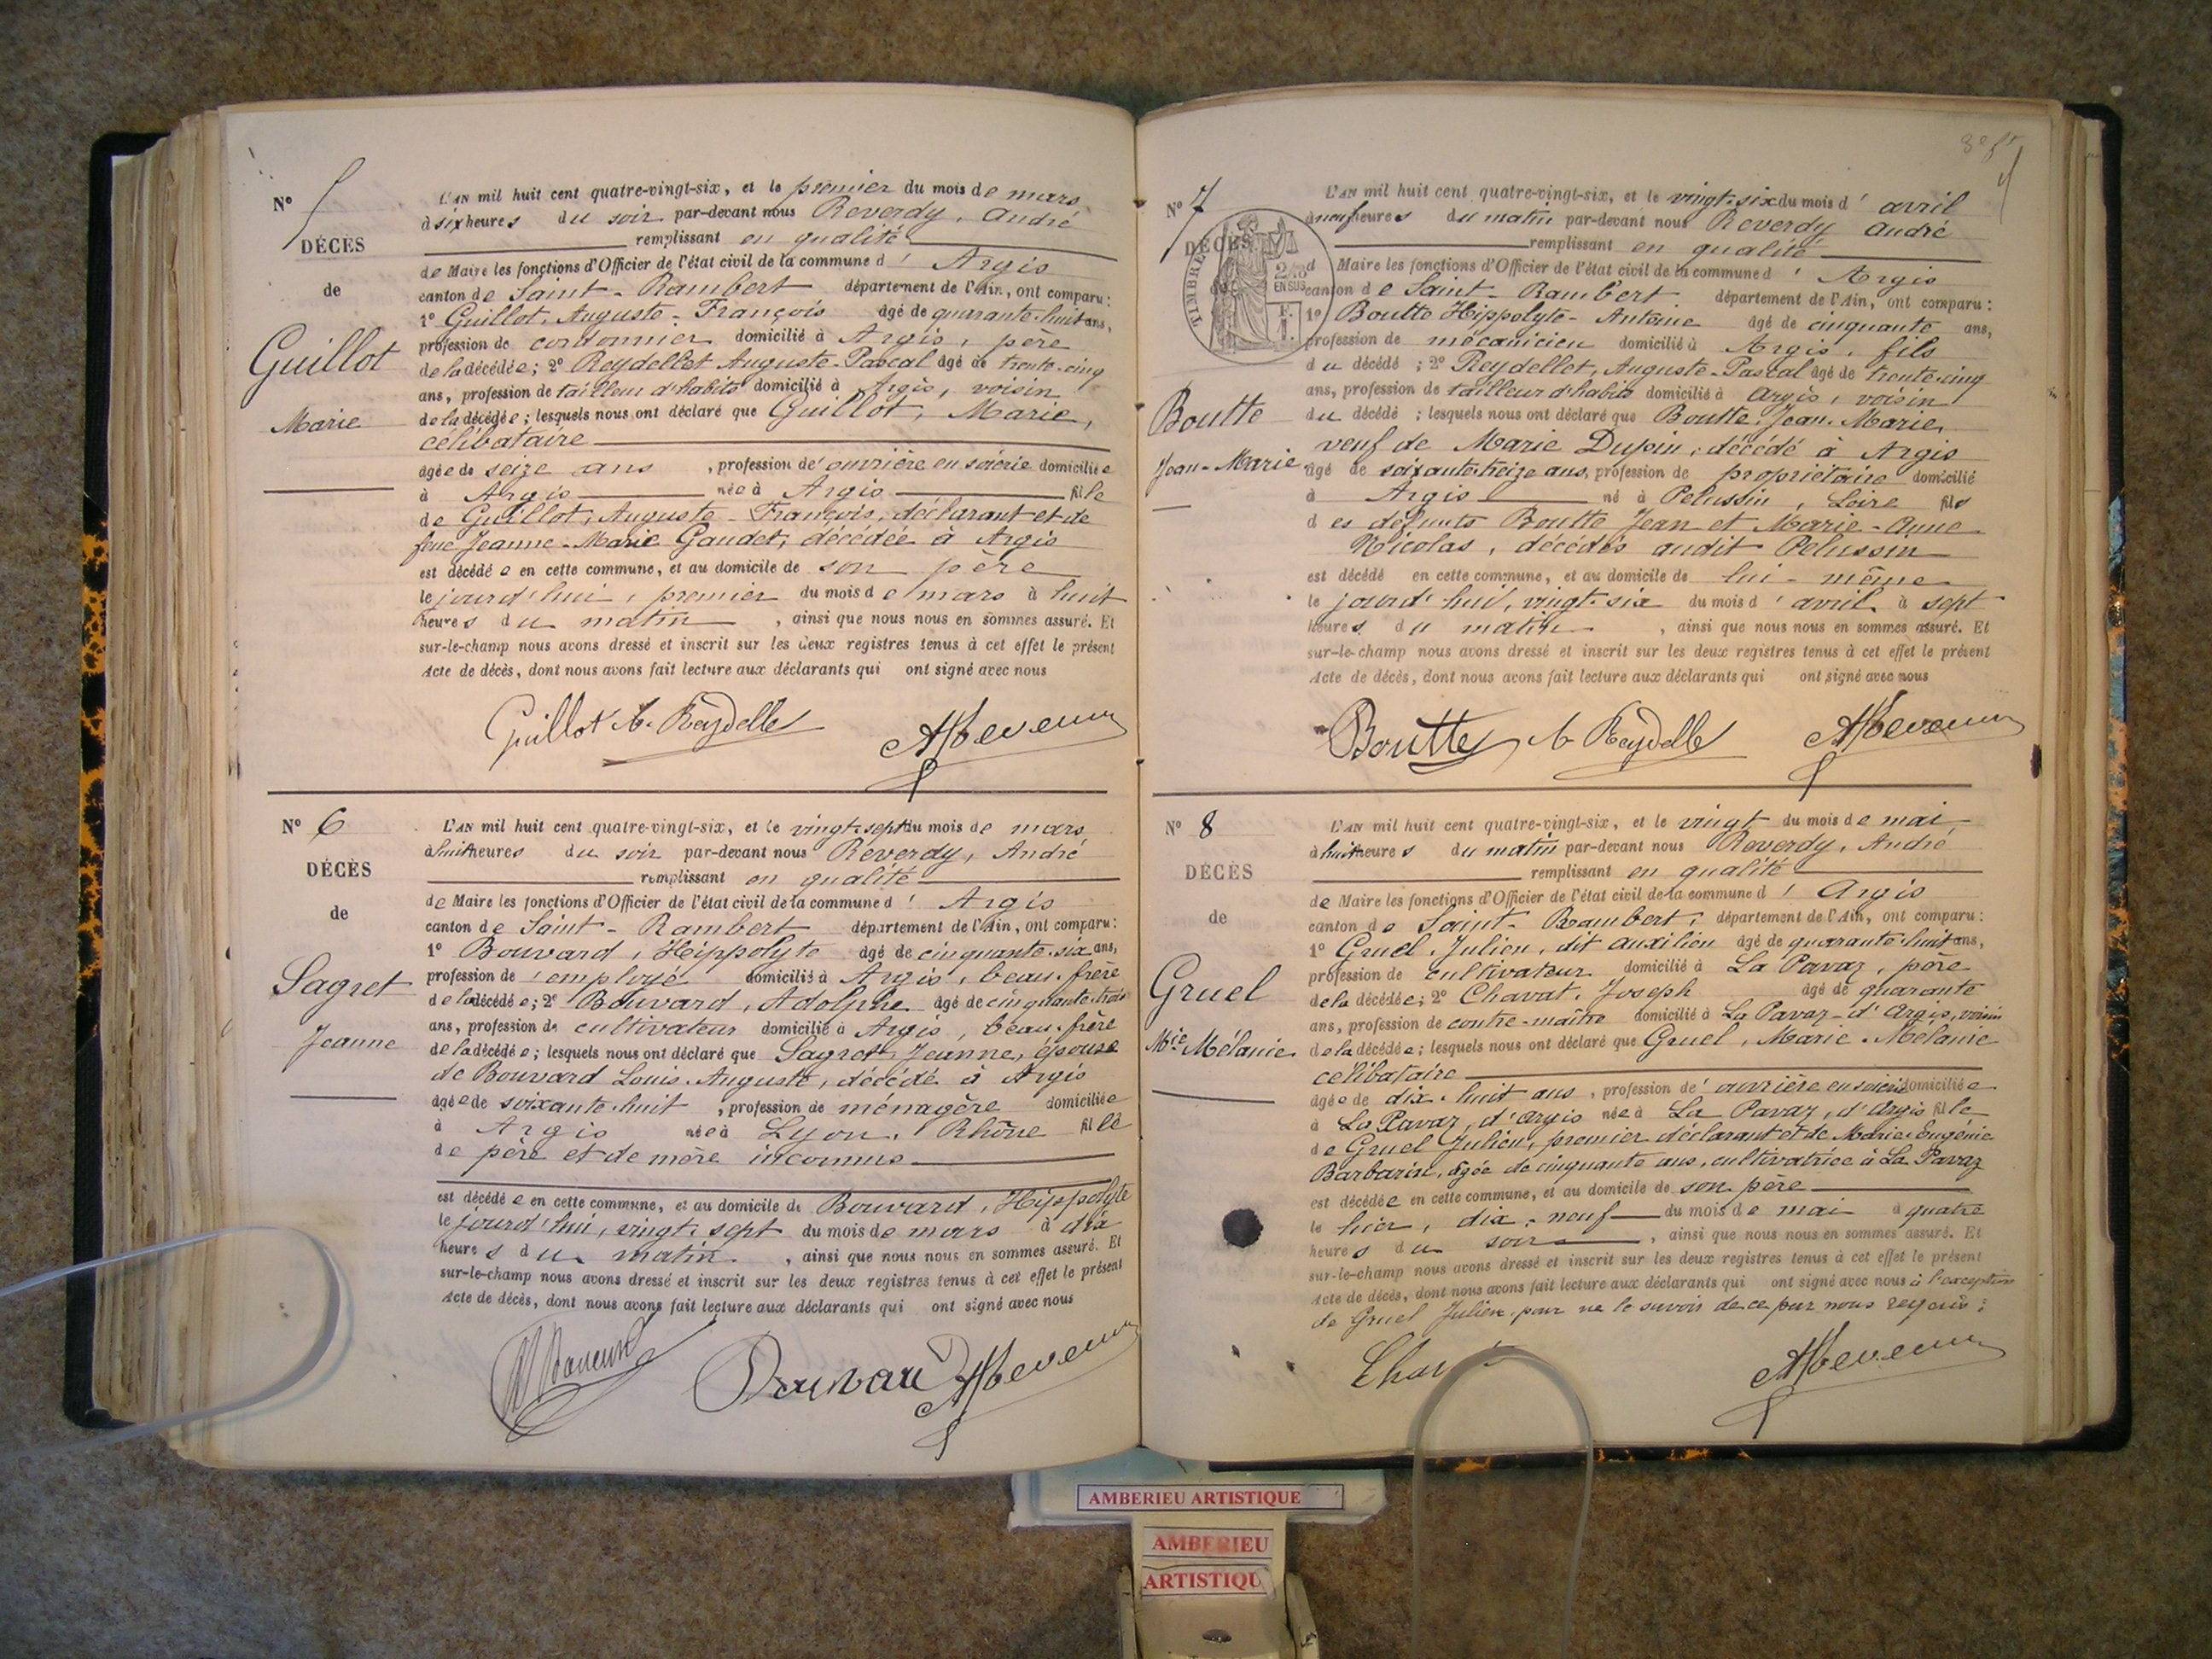 N° 5
DÉCÈS
de
Guillot
Marie
L'AN mil huit cent quatre-vingt-six, et le premier du mois de mars
à six heures du soir par-devant nous Reverdy, André
remplissant en qualité
de Maire les fonctions d'Officier de l'état civil de la commune d' Argis
canton de Saint-Rambert département de l'Ain, ont comparu:
1° Guillot, Auguste-François âgé de quarante-huit ans,
profession de cordonnier domicilié à Argis, père
de la décédée; 2° Reydellet Auguste-Pascal âgé de trente-cinq
ans, profession de tailleur d'habits domicilié à Argis, voisin
de la décédée; lesquels nous ont déclaré que Guillot, Marie,
célibataire
âgée de seize ans, profession d'ouvrière en soierie domiciliée
à Argis née à Argis fille
de Guillot, Auguste-François, déclarant et de
feue Jeanne-Marie Gaudet, décédée à Argis
est décédée en cette commune, et au domicile de son père
le jourd'hui, premier du mois de mars à huit
heures du matin, ainsi que nous nous en sommes assuré. Et
sur-le-champ nous avons dressé et inscrit sur les deux registres tenus à cet effet le présent
Acte de décès, dont nous avons fait lecture aux déclarants qui ont signé avec nous
Guillot A. Reydellet
N° 6
DÉCÈS
de
Sagret
Jeanne
L'AN mil huit cent quatre-vingt-six, et le vingt-sept du mois de mars
à huit heures du soir par-devant nous Reverdy, André
remplissant en qualité
de Maire les fonctions d'Officier de l'état civil de la commune d' Argis
canton de Saint-Rambert département de l'Ain, ont comparu:
1° Bouvard, Hippolyte âgé de cinquante-six ans,
profession d'employé domicilié à Argis, beau-frère
de la décédée; 2° Bouvard, Adolphe âgé de cinquante-trois
ans, profession de cultivateur domicilié à Argis, beau-frère
de la décédée; lesquels nous ont déclaré que Sagret, Jeanne, épouse
de Bouvard Louis-Auguste, décédé à Argis
âgée de soixante-huit, profession de ménagère domiciliée
à Argis née à Lyon, Rhône fille
de père et de mère inconnus
est décédée en cette commune, et au domicile de Bouvard, Hippolyte
le jourd'hui, vingt-sept du mois de mars à dix
heures du matin, ainsi que nous nous en sommes assuré. Et
sur-le-champ nous avons dressé et inscrit sur les deux registres tenus à cet effet le présent
Acte de décès, dont nous avons fait lecture aux déclarants qui ont signé avec nous
Bouvard
N° 7
DÉCÈS
TIMBRE
2/10
EN SUS
Boutte
Jean-Marie
L'AN mil huit cent quatre-vingt-six, et le vingt-six du mois d' avril
à neuf heures du matin par-devant nous Reverdy André
remplissant en qualité
d Maire les fonctions d'Officier de l'état civil de la commune d' Argis
canton de Saint-Rambert. département de l'Ain, ont comparu:
1° Boutte Hippolyte-Antoine âgé de cinquante ans,
profession de mécanicien domicilié à Argis, fils
du décédé; 2° Reydellet, Auguste-Pascal âgé de trente-cinq
ans, profession de tailleur d'habits domicilié à Argis, voisin
du décédé; lesquels nous ont déclaré que Boutte, Jean-Marie,
veuf de Marie Dupin, décédé à Argis
âgé de soixante-treize ans, profession de propriétaire domicilié
à Argis né à Pelussin, Loire fils
des défunts Boutte Jean et Marie-Anne
Nicolas, décédés audit Pelussin
est décédé en cette commune, et au domicile de lui-même
le jourd'hui, vingt-six du mois d' avril à sept
heures du matin, ainsi que nous nous en sommes assuré. Et
sur-le-champ nous avons dressé et inscrit sur les deux registres tenus à cet effet le présent
Acte de décès, dont nous avons fait lecture aux déclarants qui ont signé avec nous
Boutte A Reydellet
N° 8
DÉCÈS
de
Gruel
Mie Mélanie
L'AN mil huit cent quatre-vingt-six, et le vingt du mois de mai
à huit heures du matin par-devant nous Reverdy, André
remplissant en qualité
de Maire les fonctions d'Officier de l'état civil de la commune d' Argis
canton de Saint-Rambert, département de l'Ain, ont comparu:
1° Gruel, Julien, dit auxilien âgé de quarante-huit ans,
profession de cultivateur domicilié à La Pavaz, père
de la décédée; 2° Chavat, Joseph âgé de quarante
ans, profession de contre-maître domicilié à La Pavaz-d'Argis, voisin
de la décédée; lesquels nous ont déclaré que Gruel, Marie-Mélanie
célibataire
âgée de dix-huit ans, profession d'ouvrière en soierie domiciliée
à La Pavaz, d'Argis née à La Pavaz, d'Argis fille
de Gruel Julien, premier déclarant et de Marie-Eugénie
Barbarin, âgée de cinquante ans, cultivatrice à La Pavaz
est décédée en cette commune, et au domicile de son père
le hier, dix-neuf du mois de mai à quatre
heures du soir, ainsi que nous nous en sommes assuré. Et
sur-le-champ nous avons dressé et inscrit sur les deux registres tenus à cet effet le présent
Acte de décès, dont nous avons fait lecture aux déclarants qui ont signé avec nous à l'exception
de Gruel Julien, pour ne le savoir de ce par nous requis:
AMBERIEU ARTISTIQUE
AMBERIEU
ARTISTIQU